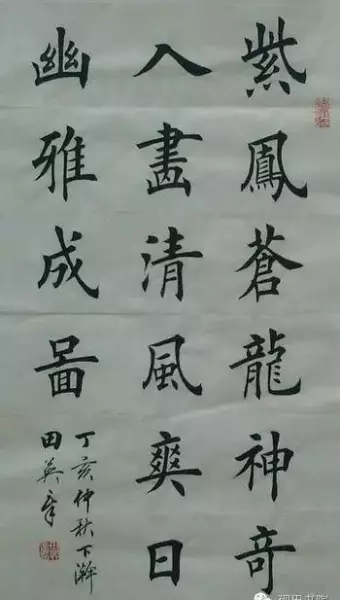 紫鳳蒼龍神奇
入畫清風爽日
幽雅成啚
丁亥仲秋下澣
田英章